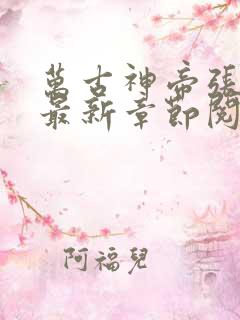 萬古神帝張
最新章節閱
阿福兒